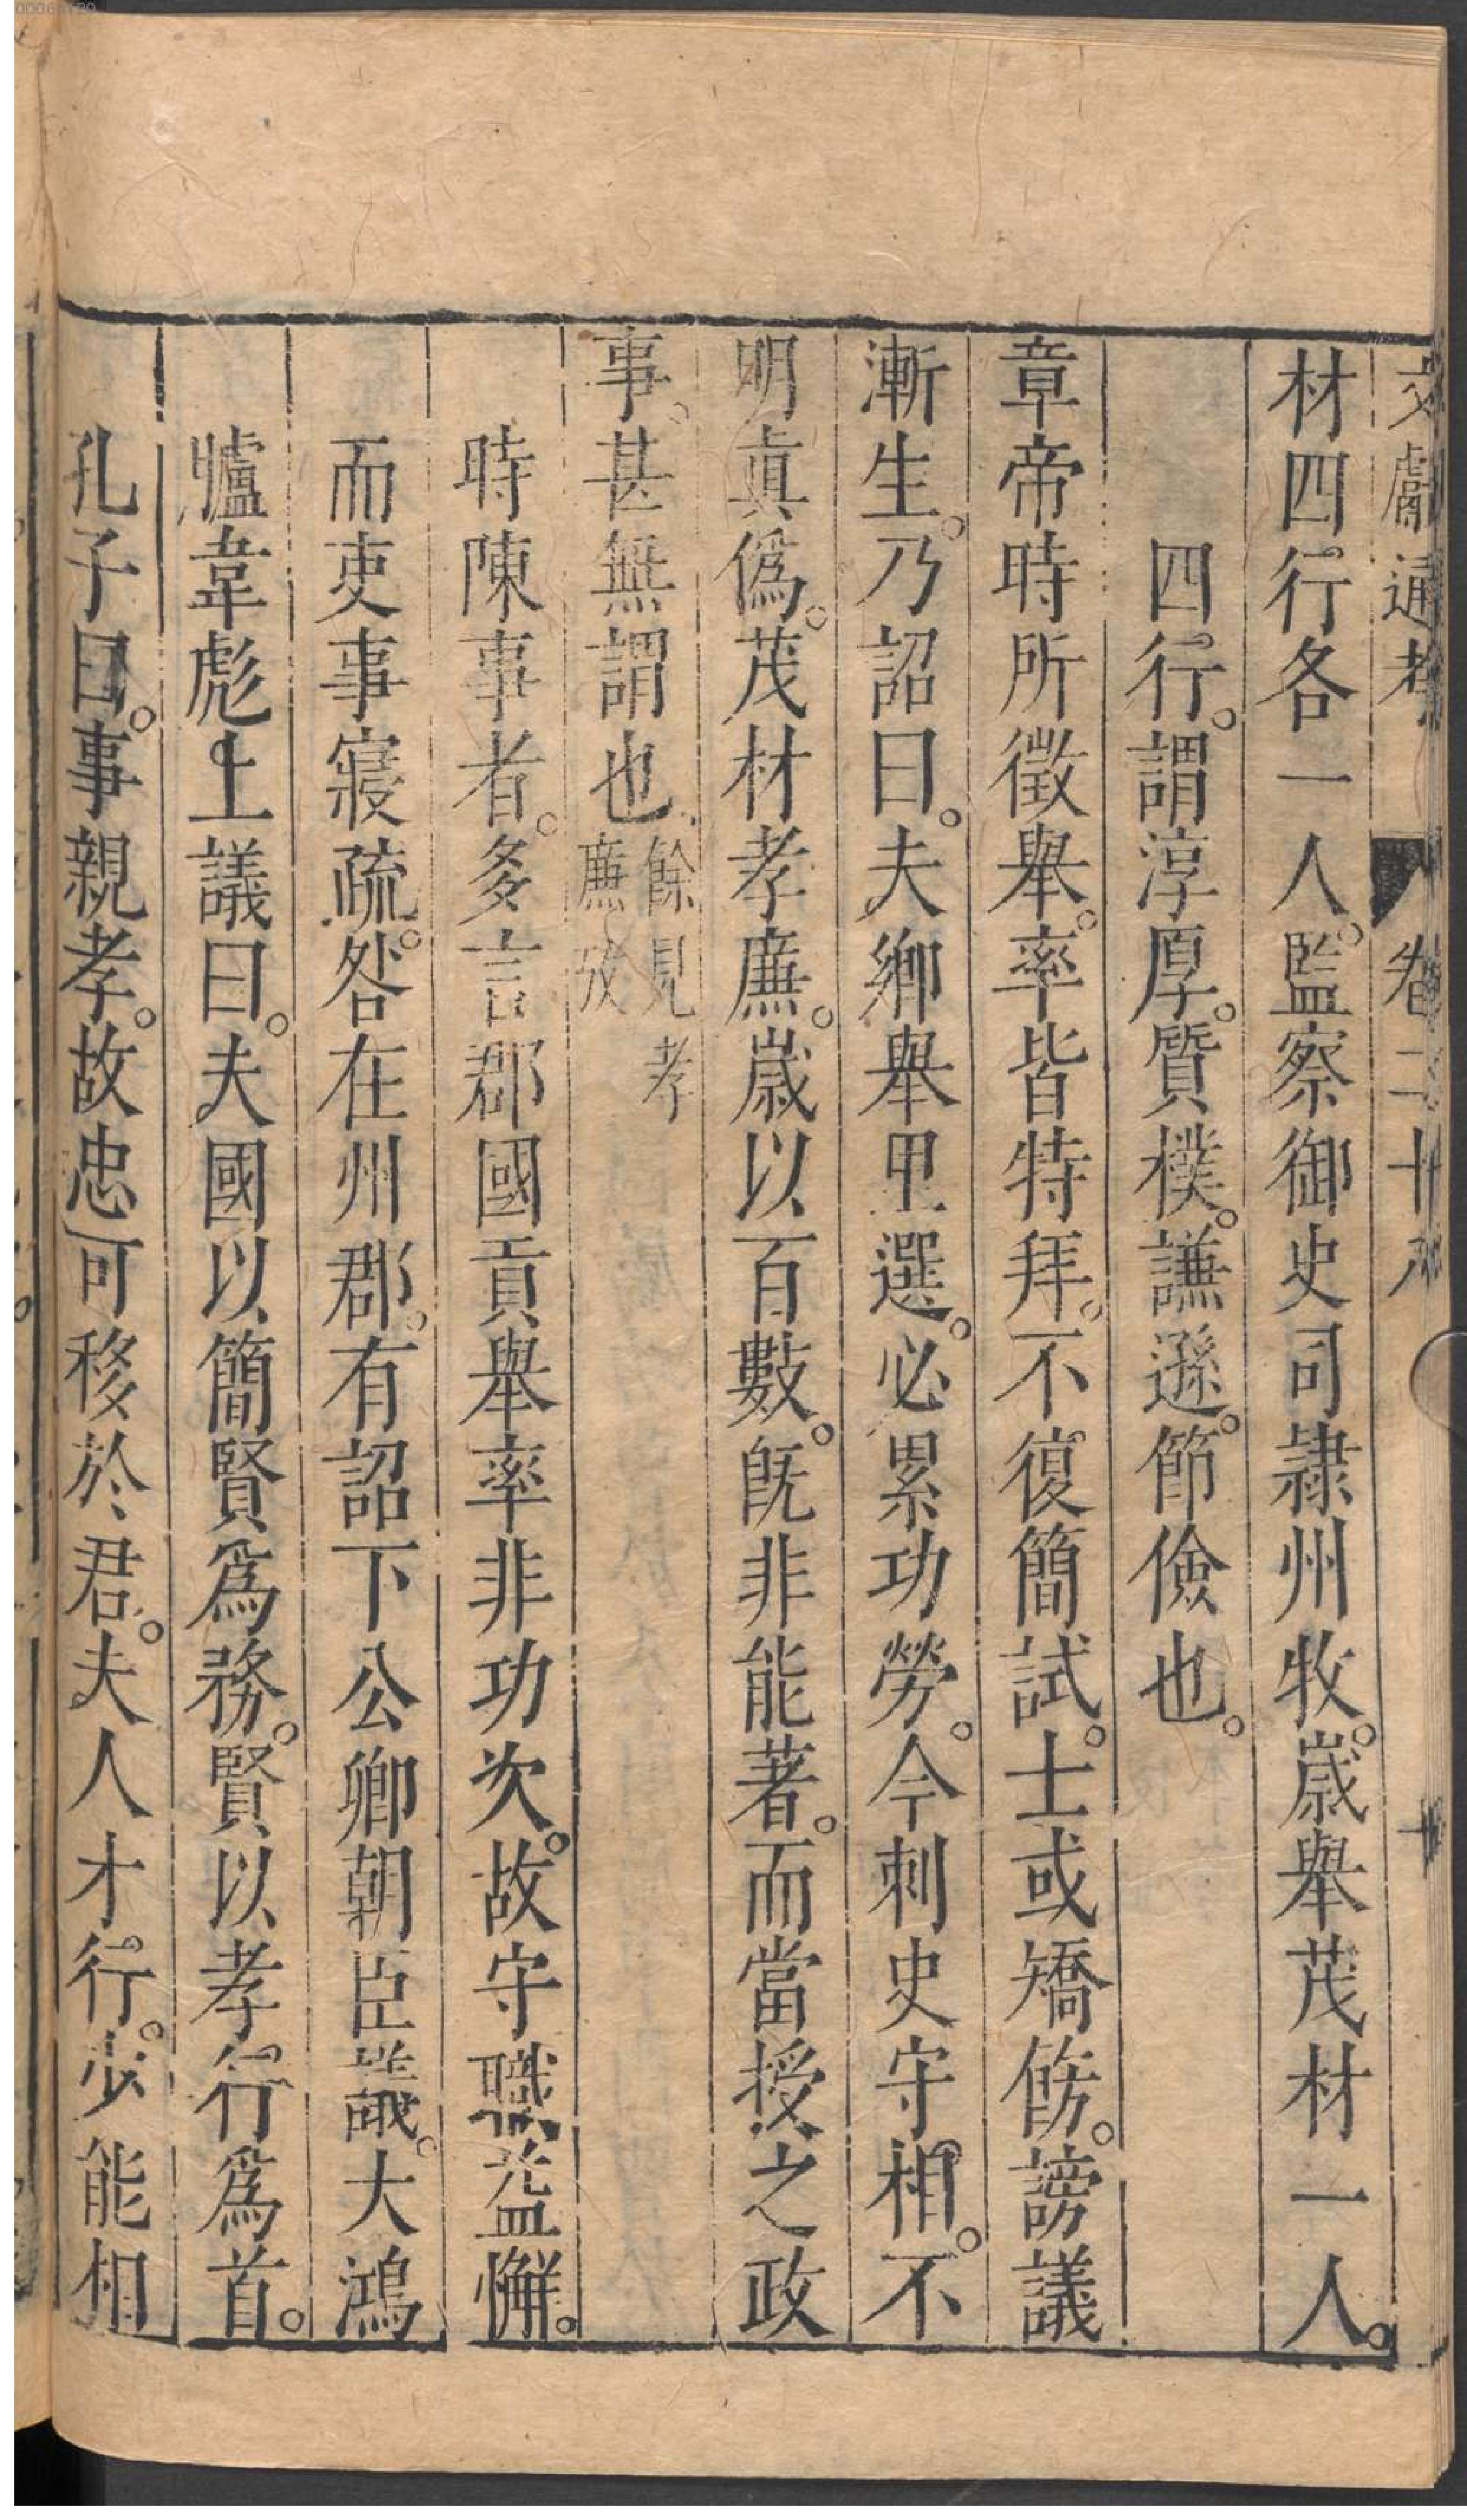 文獻通考 卷二十八 十
材四行各一人。監察御史司隷州牧。歲舉茂材一人。
四行。謂淳厚。質樸。謙遜。節儉也。
章帝時所徵舉。率皆特拜。不復簡試。士或矯飭。謗議
漸生。乃詔曰。夫鄉舉里選。必累功勞。今刺史守相。不
明眞僞。茂材孝廉。歲以百數。旣非能著。而當授之政
事。甚無謂也。餘見孝廉攷
時陳事者。多言郡國貢舉率非功次。故守職益懈。
而吏事寢疏。咎在州郡。有詔下公卿朝臣議。大鴻
臚韋彪上議曰。夫國以簡賢爲務。賢以孝行爲首。
孔子曰。事親孝。故忠可移於君。夫人才行。少能相